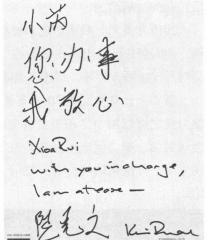 小芮
您办事
我放心
Xiao Rui
with you in charge,
I am at ease —
陆克文 Kevin Rudd